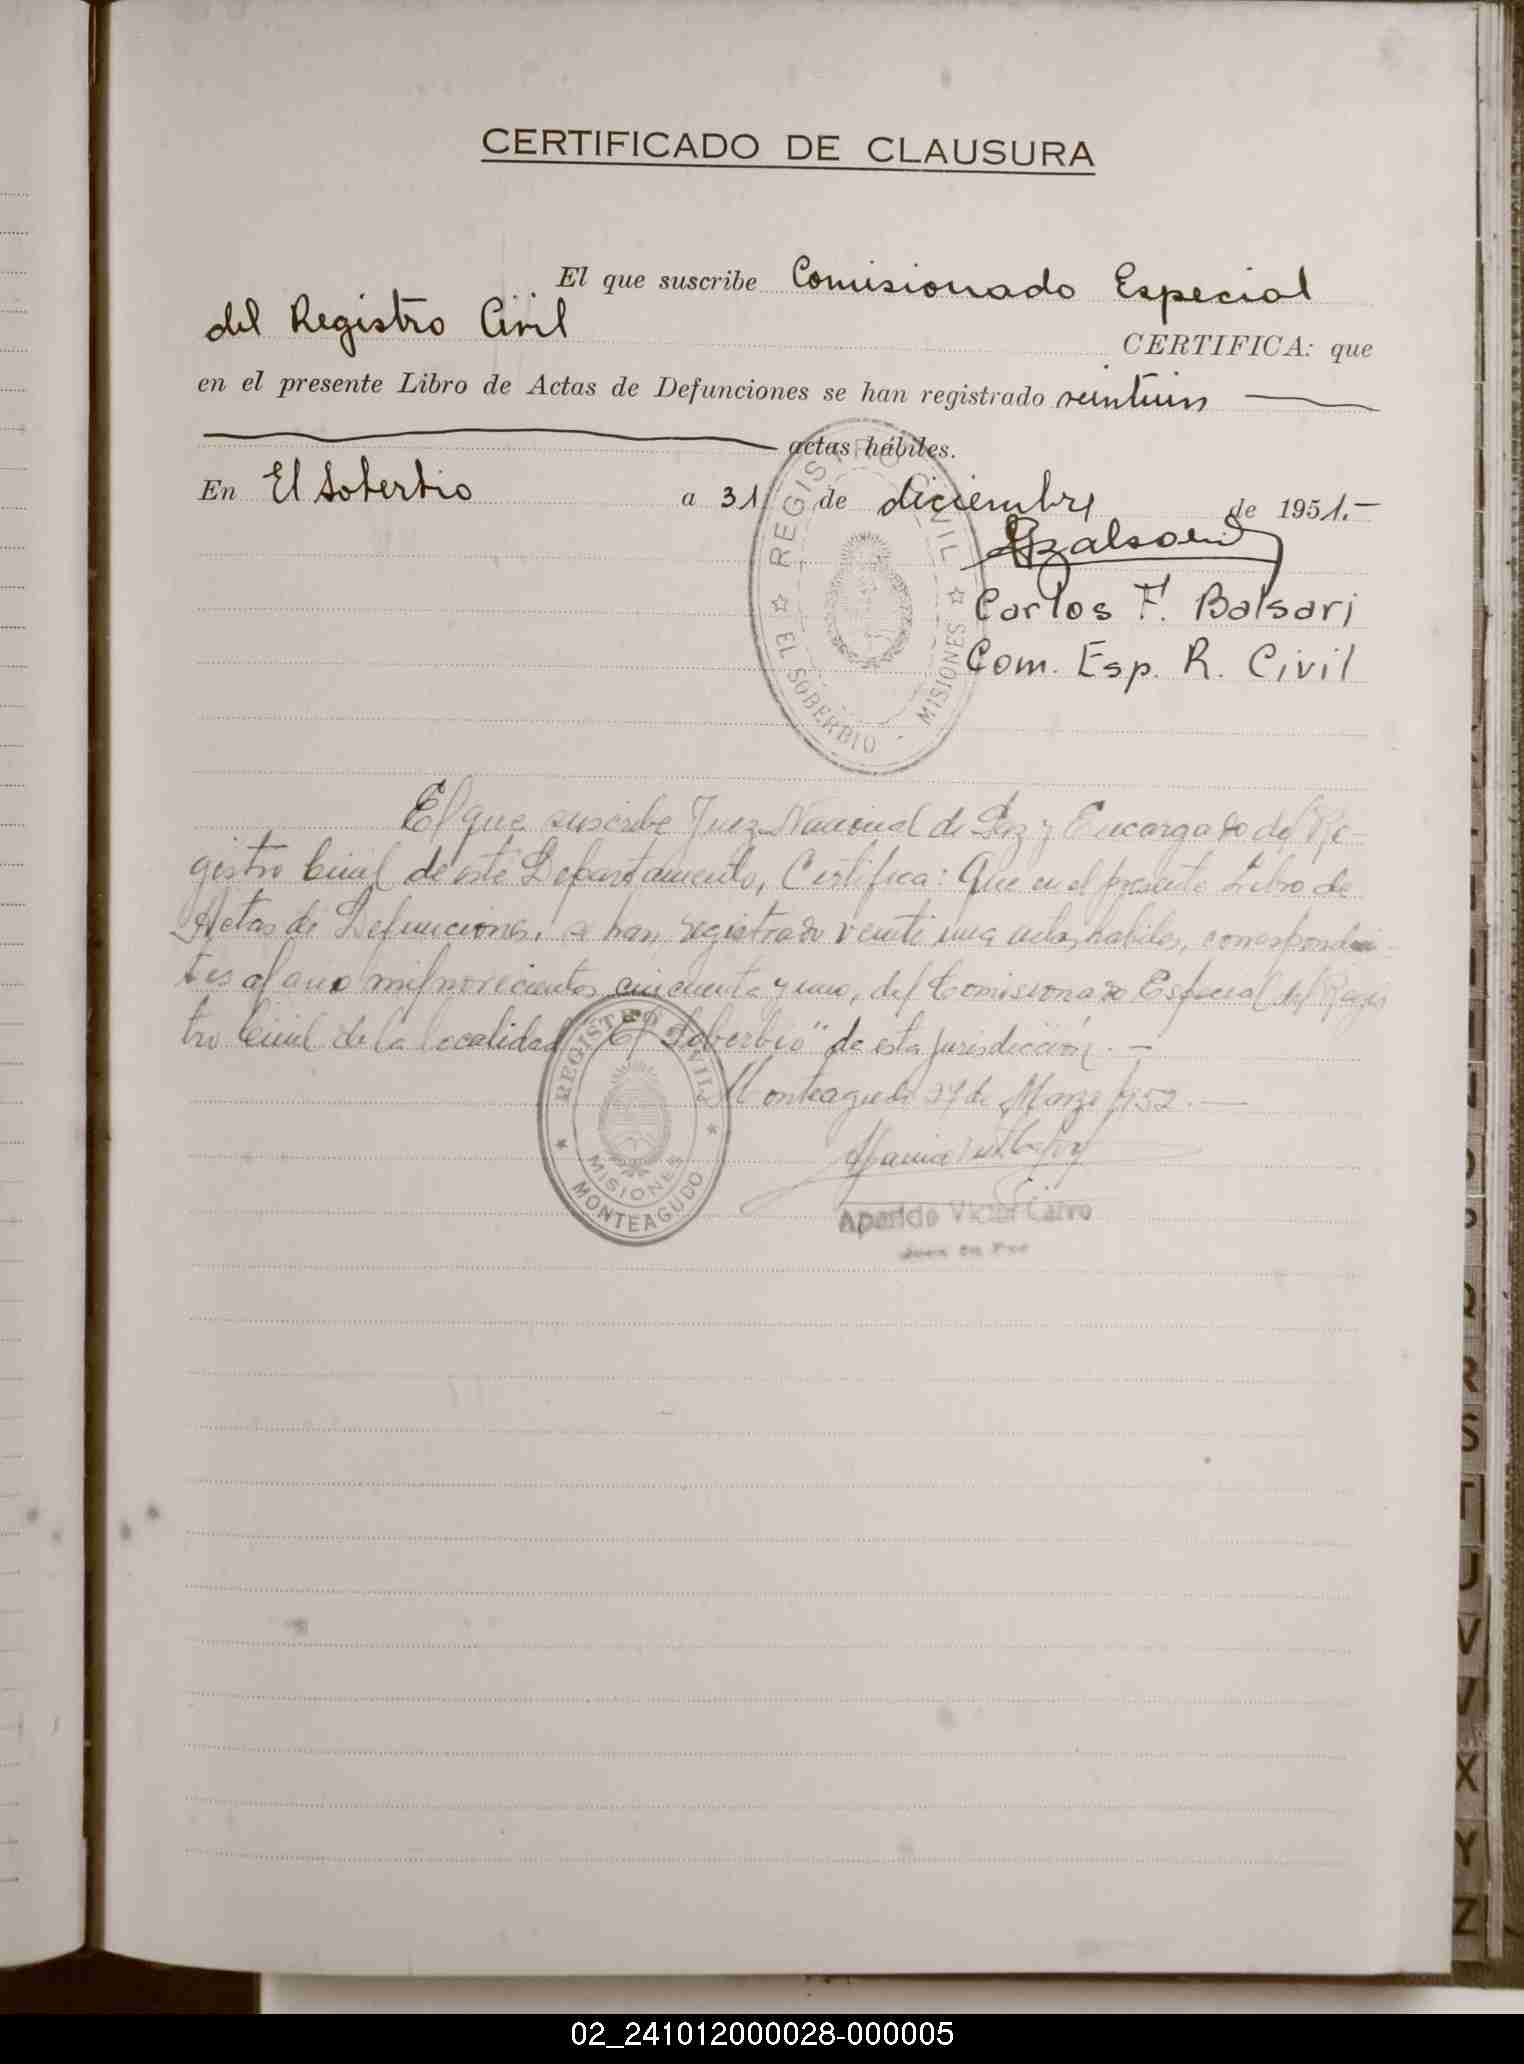 CERTIFICADO DE CLAUSURA
El que suscribe Comisionado Especial
del Registro Civil CERTIFICA: que
en el presente Libro de Actas de Defunciones se han registrado veintiun
actas hábiles.
En El Soberbio a 31 de diciembre de 1951.-
Carlos F. Balsari
Com. Esp. R. Civil
REGISTRO CIVIL
EL SOBERBIO - MISIONES
El que suscribe Juez Nacional de Paz y Encargado del Re-
gistro Civil de este Departamento, Certifica: Que en el presente Libro de
Actas de Defunciones, se han registrado veinti una actas habiles, correspondien-
tes al año mil novecientos cincuenta y uno, del Comisionado Especial del Regis
tro Civil de la localidad "El Soberbio" de esta jurisdicción.-
Monteagudo 27 de Marzo 1952.-
REGISTRO CIVIL
MISIONES
MONTEAGUDO
Aparicio Victor
Juez de Paz
Q
R
S
T
U
V
X
Y
Z
02_241012000028-000005